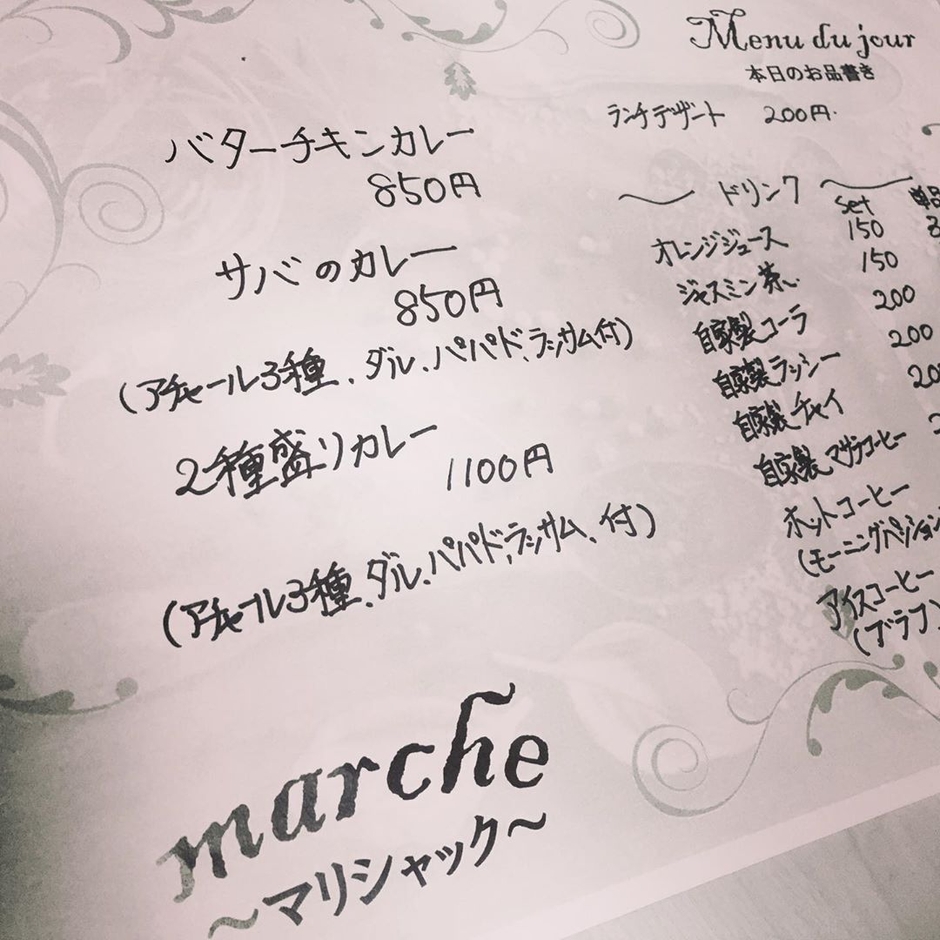 Menu du jour
本日のお品書き
バターチキンカレー
850円
サバのカレー
850円
(アチャール3種、ダル、パパド、ラッサム付)
2種盛りカレー
1100円
(アチャール3種、ダル、パパド、ラッサム、付)
marche
〜マリシャック〜
ランチデザート 200円
〜 ドリンク 〜
set 単品
オレンジジュース 150
ジャスミン茶 150
自家製コーラ 200
自家製ラッシー 200
自家製チャイ
自家製マサラコーヒー
ホットコーヒー
(モーニングパッション
アイスコーヒー
(ブラフ)